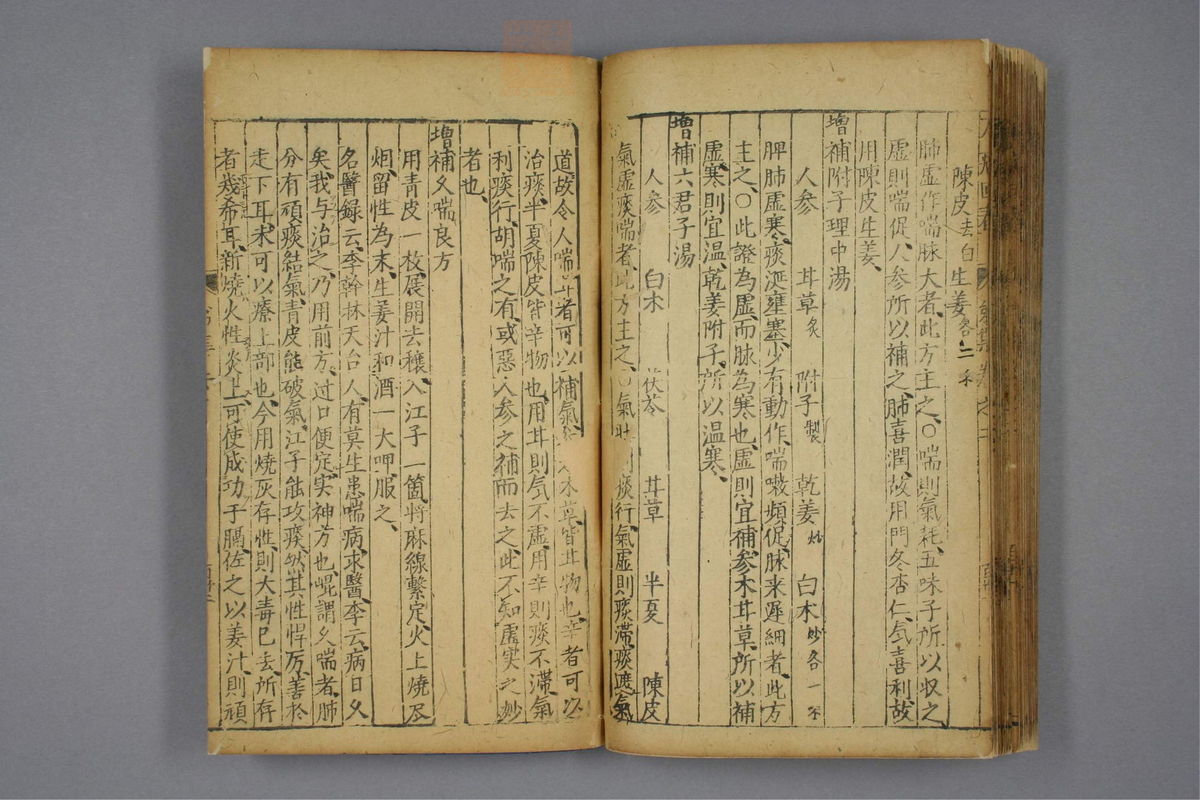 陳皮去白 生姜各二不
肺虛作喘脉大者此方主之○喘則氣耗五味子所以収之
虛則喘促人參所以補之肺喜潤故用門冬杏仁氣喜利故
用陳皮生姜
增補附子理中湯
人參 甘草炙 附子製 乾姜炒 白木炒各一不
脾肺虛寒痰涎壅塞少有動作喘嗽頻促脉来遲細者此方
主之○此證為虛而脉為寒也虛則宜補參木甘草所以補
虛寒則宜温乾姜附子所以温寒
增補六君子湯
人參 白木 茯苓 甘草 半夏 陳皮
氣虛痰喘者此方主之○氣 痰行氣虛則痰滯痰遮氣
道故令人喘甘者可以補氣 木草皆甘物也辛者可以
治痰半夏陳皮皆辛物也用甘則気不虛用辛則痰不滯氣
利痰行胡喘之有或惡人參之補而去之此不知虛实之妙
者也
增補久喘良方
用青皮一枚展開去穰入江子一箇將麻線繫定火上燒尽
烟留性為末生姜汁和酒一大呷服之
名醫録云李翰林天台人有莫生患喘病求醫李云病日久
矣我与治之乃用前方过口便定实神方也崐謂久喘者肺
分有頑痰結氣青皮能破氣江子能攻痰然其性悍厉善於
走下耳未可以療上部也今用燒灰存性則大毒已去所存
者幾希耳新燒火性炎上可使成功于膈佐之以姜汁則頑